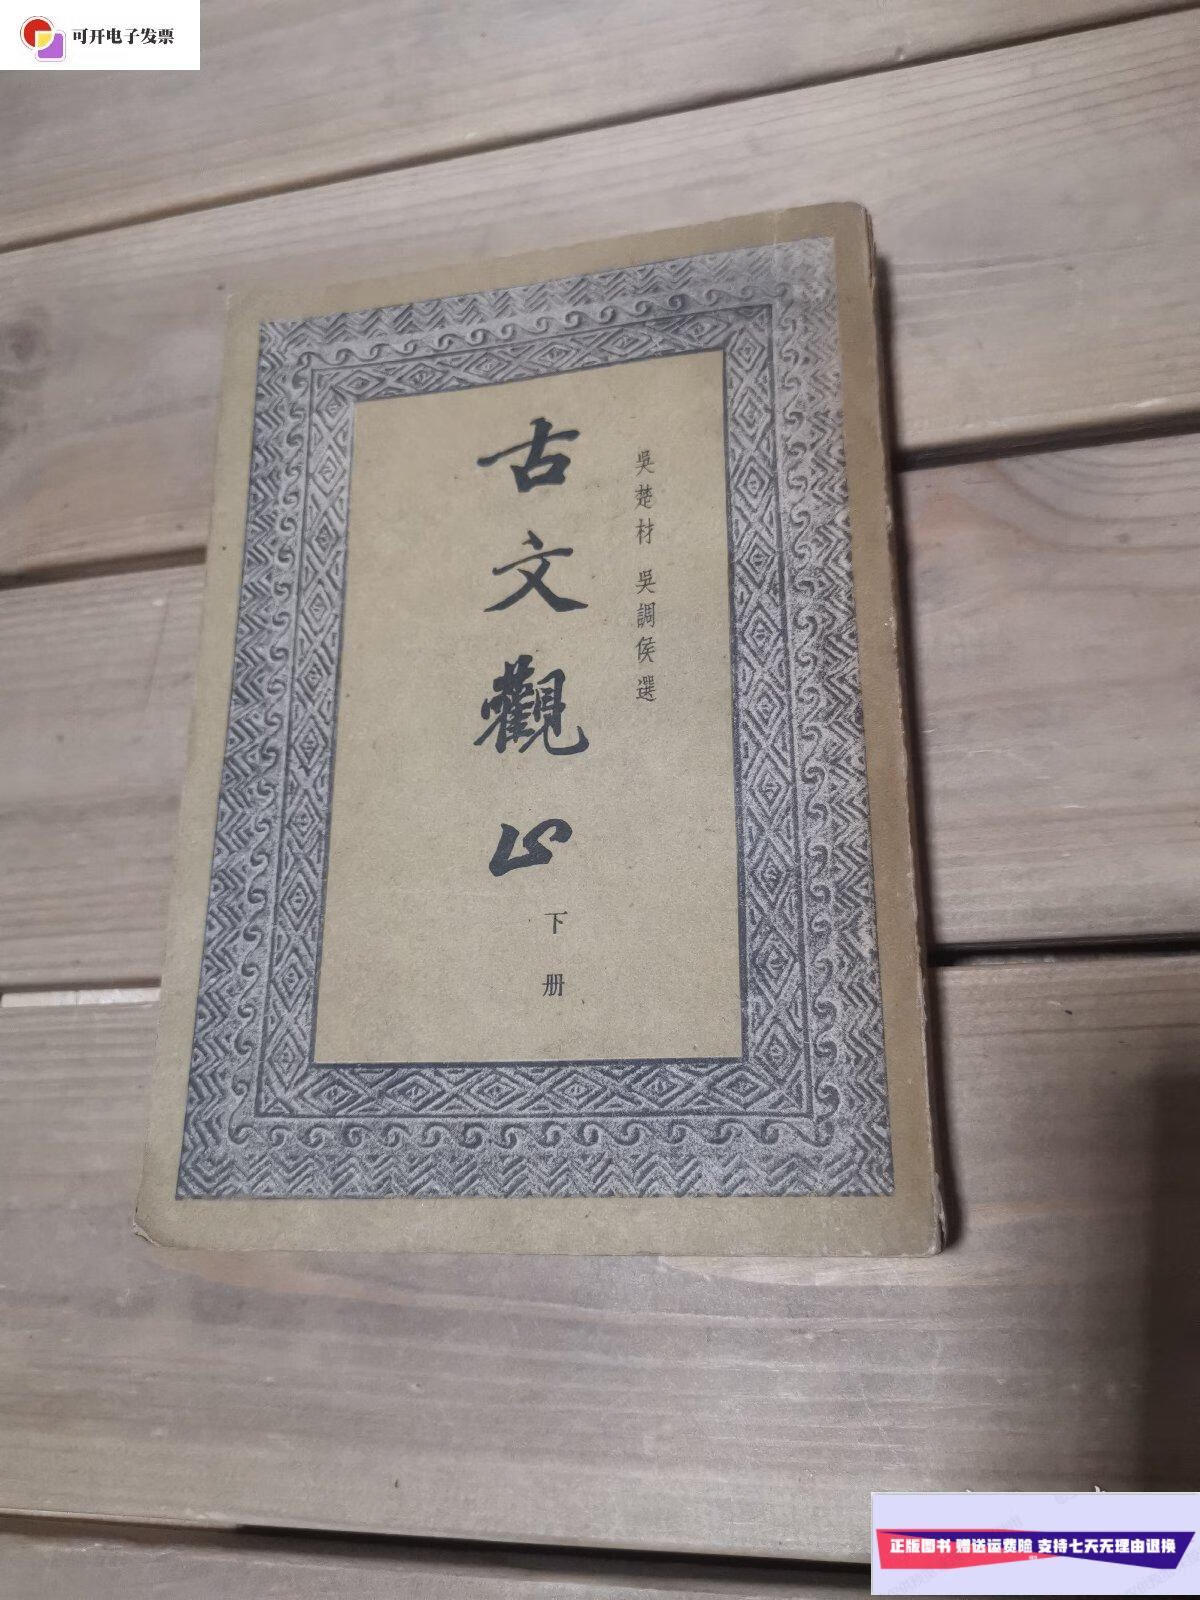 可开电子发票
吳楚材 吳調侯選
古文觀止
下册
正版图书 赠送运费险 支持七天无理由退换